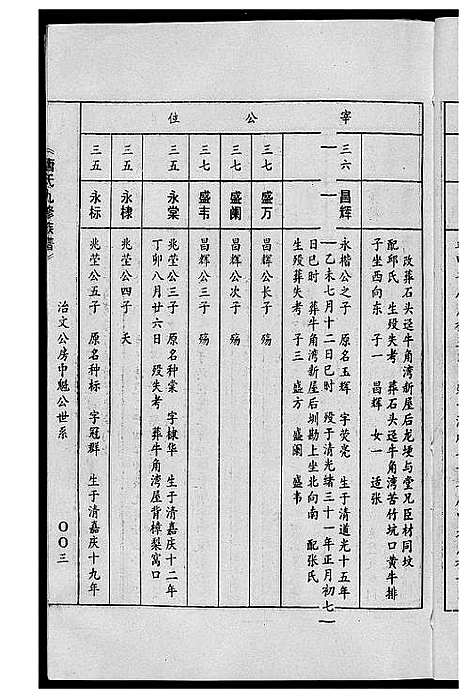 宰公位
改葬石头迳牛角湾新屋后龙埂与堂兄臣材同坟
配邱氏 生殁失考 葬石头迳牛角湾苦竹坑口黄牛排
子坐西向东 子一 昌辉 女一 适张
三六 昌辉 永楷公之子 原名玉辉 字荧亮 生于清道光十五年
乙未七月十二日巳时 殁于清光绪三十一年正月初七
日巳时 葬牛角湾新屋后圳勘上坐北向南 配张氏
生殁葬失考 子三 盛万 盛阑 盛韦
三七 盛万 昌辉公长子 殇
三七 盛阑 昌辉公次子 殇
三七 盛韦 昌辉公三子 殇
三五 永棠 兆莹公三子 原名种棠 字棣华 生于清嘉庆十二年
丁卯八月廿六日 殁失考 葬牛角湾屋背樟梨窝口
三五 永棣 兆莹公四子 夭
三五 永标 兆莹公五子 原名种标 字冠群 生于清嘉庆十九年
氏九修族谱
治文公房中魁公世系
〇〇三